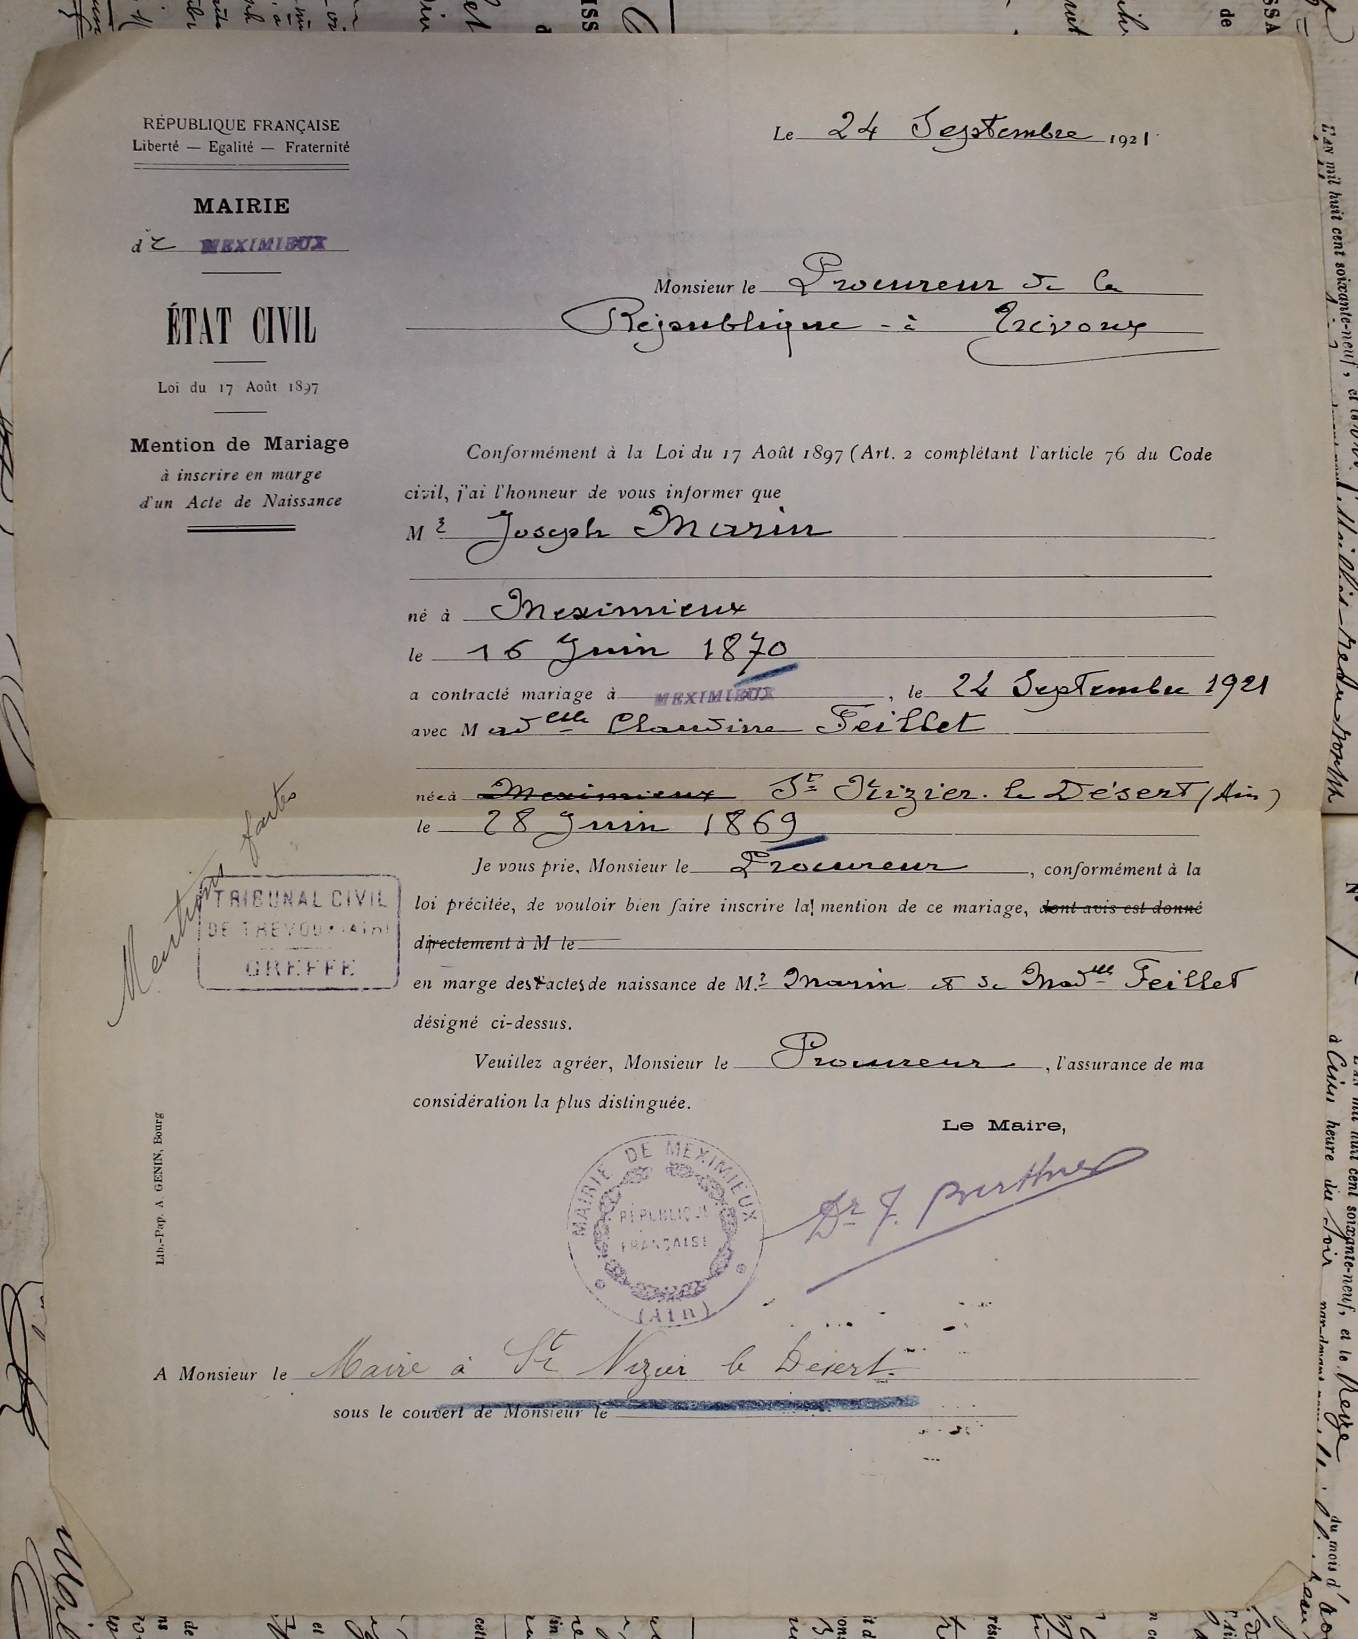 RÉPUBLIQUE FRANÇAISE
Liberté — Egalité — Fraternité
MAIRIE
de MEXIMIEUX
ÉTAT CIVIL
Loi du 17 Août 1897
Mention de Mariage
à inscrire en marge
d'un Acte de Naissance
Le 24 Septembre 1921
Monsieur le Procureur de la
République à Trévoux
Conformément à la Loi du 17 Août 1897 (Art. 2 complétant l'article 76 du Code
civil, j'ai l'honneur de vous informer que
Mr Joseph Marin
né à Meximieux
le 16 Juin 1870
a contracté mariage à MEXIMIEUX, le 24 Septembre 1921
avec Madelle Claudine Feillet
née à Meximieux St Nizier le Désert (Ain)
le 28 Juin 1869
Je vous prie, Monsieur le Procureur, conformément à la
loi précitée, de vouloir bien faire inscrire la mention de ce mariage, dont avis est donné
directement à M le
en marge des actes de naissance de Mr Marin et de Madelle Feillet
désigné ci-dessus.
Veuillez agréer, Monsieur le Procureur, l'assurance de ma
considération la plus distinguée.
Le Maire,
Dr J. Berthier
Mentions faites
TRIBUNAL CIVIL
DE TREVOUX (AIN)
GREFFE
MAIRIE DE MEXIMIEUX
RÉPUBLIQUE
FRANÇAISE
(Ain)
Lib.-Pap. A GENIN, Bourg
A Monsieur le Maire à St Nizier le Désert
sous le couvert de Monsieur le